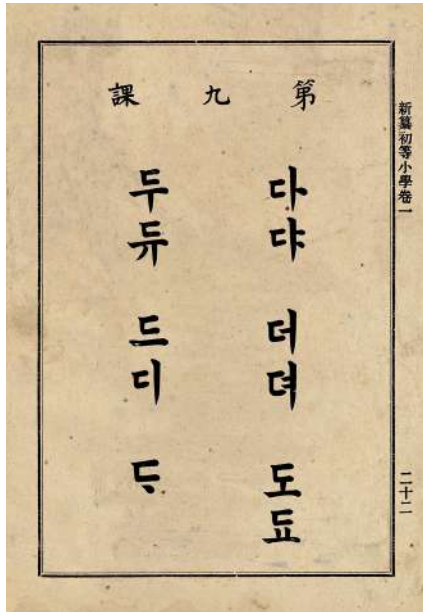 新纂初等小學卷一
二十二
第九課
다댜 더뎌 도됴
두듀 드디 ᄃᆞ